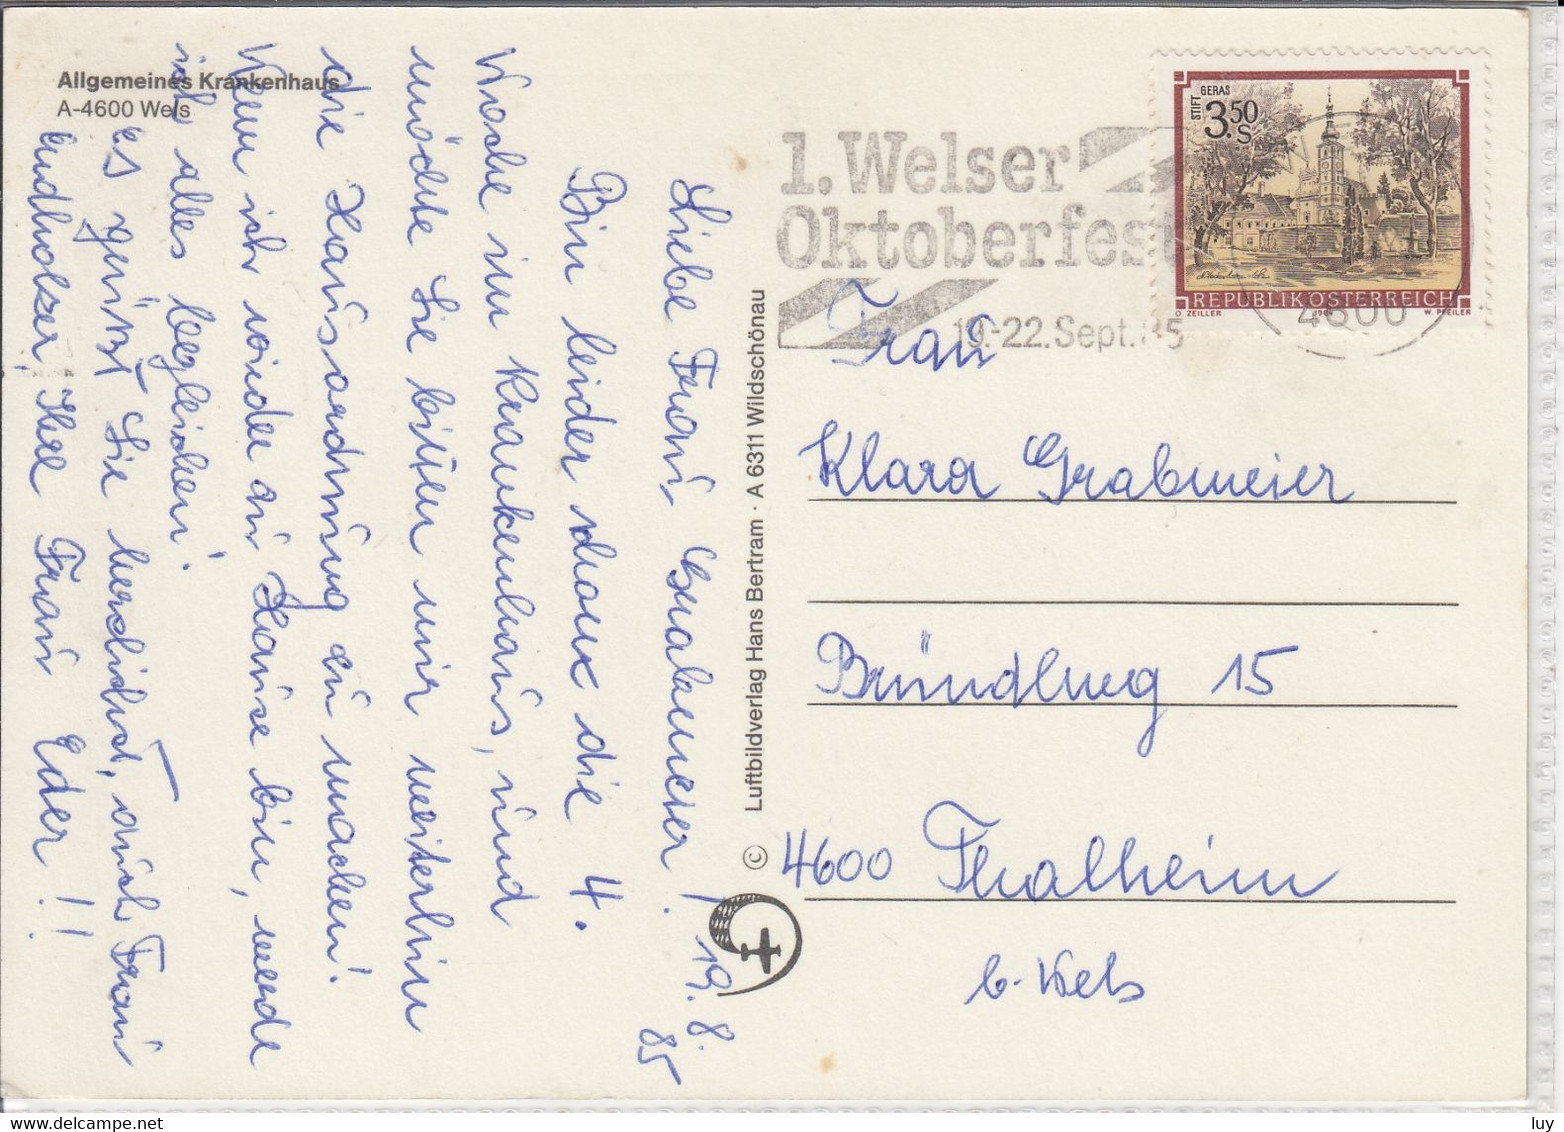 Allgemeines Krankenhaus
A-4600 Wels
Liebe Frau Grabmeier! 19.8.
85
Bin leider schon die 4.
Woche im Krankenhaus, und
möchte Sie bitten mir weiterhin
die Hausordnung zu machen!
Wenn ich wieder zu Hause bin, werde
ich alles begleichen!
es grüßt Sie herzlichst, auch Frau
Endholzer, Ihre Frau Eder!!
Luftbildverlag Hans Bertram · A 6311 Wildschönau
©
1. Welser
Oktoberfest
19.-22. Sept. 85
4600
STIFT GERAS
3.50
S
REPUBLIK ÖSTERREICH
O. ZEILLER 1984 W. PFEILER
Frau
Klara Grabmeier
Bründlweg 15
4600 Thalheim
b. Wels
luy